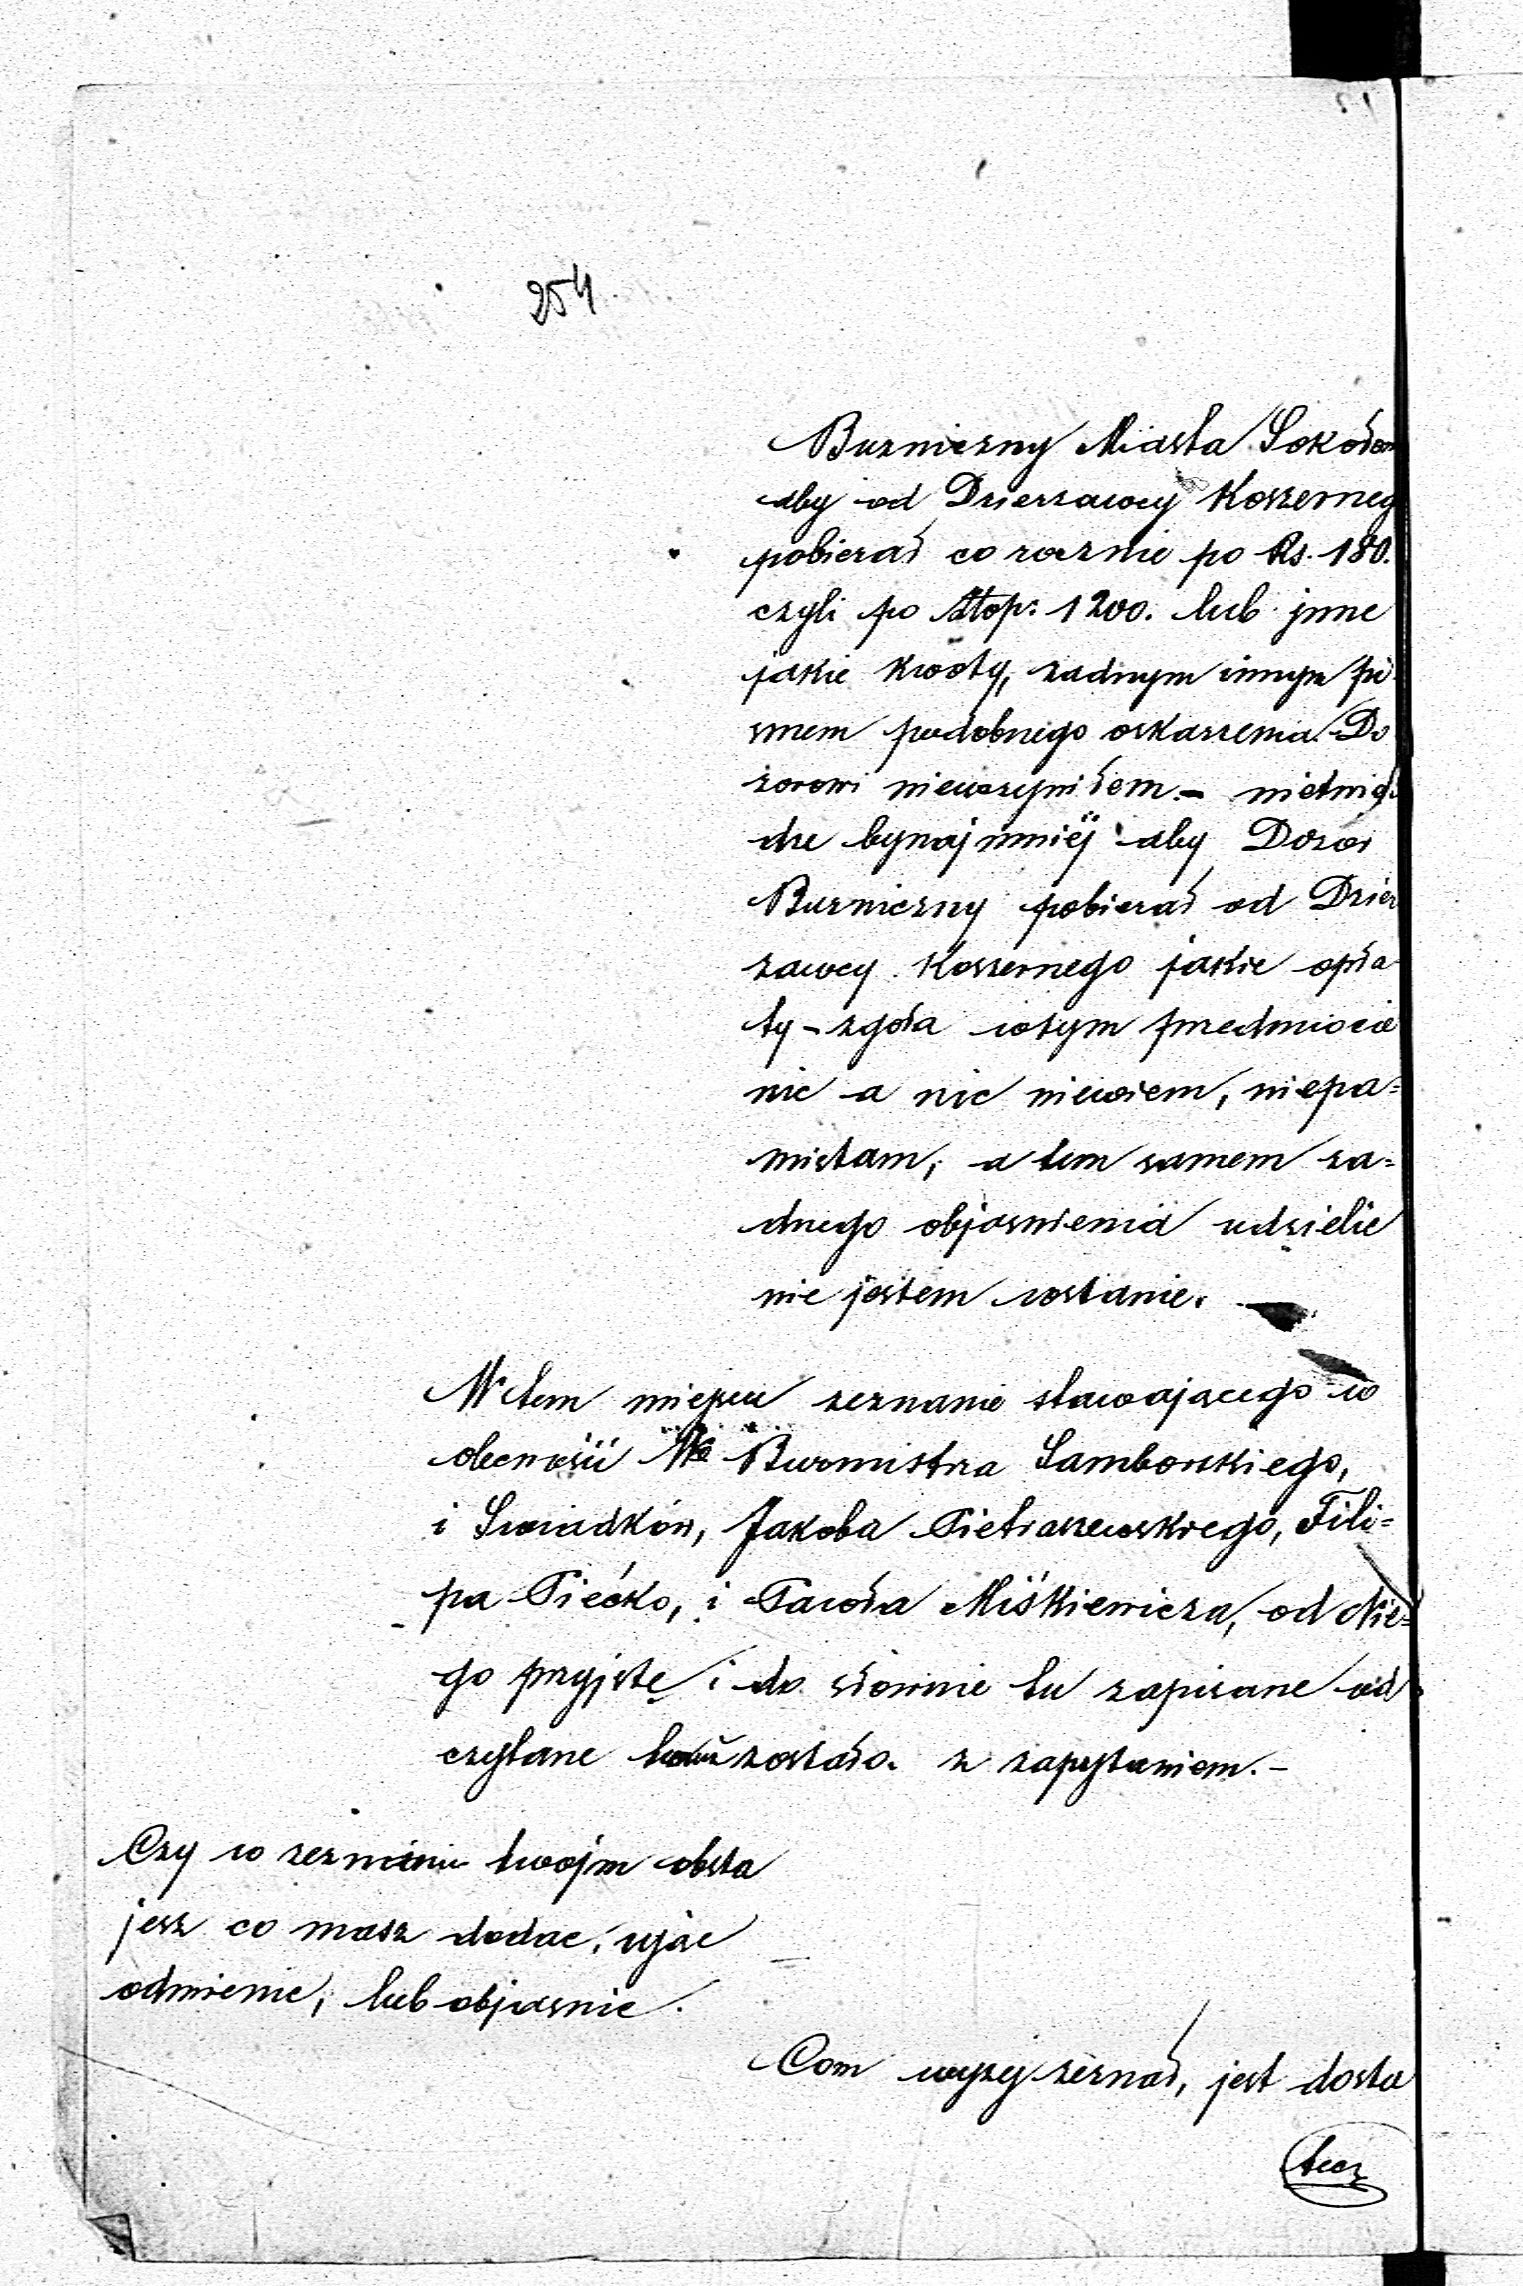 254.
Buzniczny Miasta Sokołow
aby od Dzierzawcy Koszerneg
pobierał co rocznie po Rs. 180.
czyli po Złop: 1200. lub jnne
jakie kwoty, zadnym innym pi
smem podobnego oskarzenia Do
zorowi nieuczyniłem.— nietwie
dze bynajmniéj aby Dozor
Buzniczny pobierał od Dzier
zawcy Koszernego jakie opła
ty – zgoła wtym przedmiocie
nic a nic niewiem, niepa=
mietam, a tem samem za=
dnego objasnienia udzielic
nie jestem wstanie.
W tem miejscu zeznanie stawajacego w
obecności Wo Burmistrza Samborskiego,
i Swiadków, Jakoba Pietraszewskiego, Fili=
pa Piećko, i Pawła Miśkiewicza, od Nie=
go przyjete i do słownie tu zapisane od
czytane zostało. z zapytaniem.–
Czy w zeznaniu twojm obsta
jesz co masz dodac, ujac
odmienic, lub objasnic.
Com wyzej zeznał, jest dosta
tecz